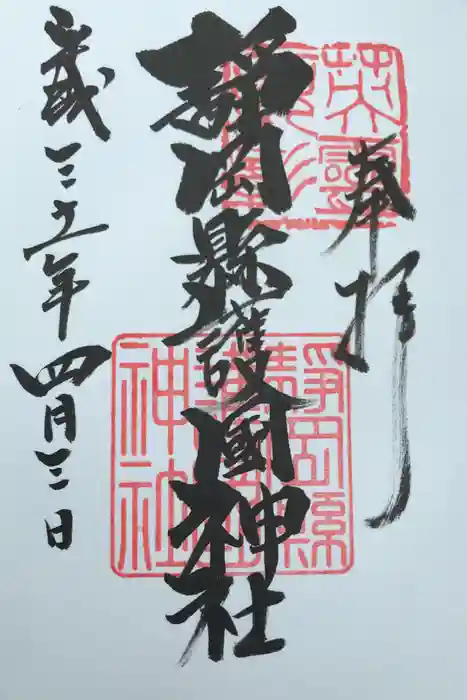 奉拝
英靈
静岡縣護國神社
静岡縣
神社
平成三十一年四月三日